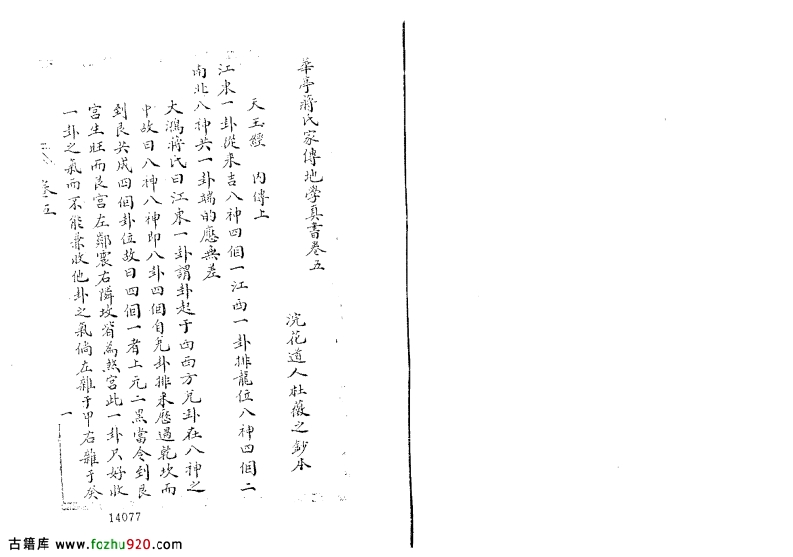 華亭蔣氏家傳地學真書卷五
浣花道人杜薇之鈔本
天玉經 內傳上
江東一卦從來吉八神四個一江西一卦排龍位八神四個二
南北八神共一卦端的應無差
大鴻蔣氏曰江東一卦謂卦起于西西方兌卦在八神之
中故曰八神八神即八卦四個自兌卦排來歷過乾坎而
到艮共成四個卦位故曰四個一者上元二黑當令到艮
宮生旺而艮宮左鄰震右隣坎皆為煞宮此一卦只好收
一卦之氣而不能兼收他卦之氣倘左雜于甲右雜于癸
卷五
一
14077
古籍库 www.fozhu920.com